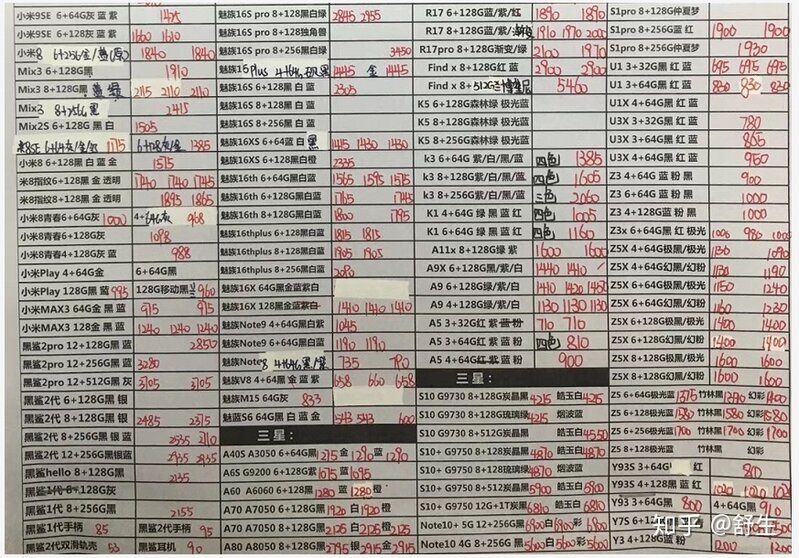 小米9SE 6+64G灰 蓝 紫 1425
小米9SE 6+128G灰 蓝 紫 1660 1610
小米8 6+256金/蓝 1840 1840
Mix3 6+128G黑 1910
Mix3 8+128G黑 蓝 绿 2115 2110 2110
Mix3 8+256G 黑 2415
Mix2S 6+128G 黑 白 1505
米8SE 6+64灰/金/红 1175 6+128灰/金 1385
小米8 6+128黑 白 蓝 金 1575
米8指纹6+128黑 金 透明 1740 1740 1745
米8指纹8+128黑 金 透明 1895 1865
小米8青春6+64G灰 1000 4+64G灰 968
小米8青春6+128G灰 1098
小米8青春4+128G灰 蓝 988
小米Play 4+64G金 6+64G黑
小米Play 128G黑 蓝 995 128G移动黑 960
小米MAX3 64G黑 金 蓝 975 975
小米MAX3 128黑 金 蓝 1240 1240 1240
黑鲨2pro 12+128G黑 蓝 2850
黑鲨2pro 12+256G黑 蓝 3280
黑鲨2pro 12+512G黑 灰 3705 3705
黑鲨2代 6+128G黑 银
黑鲨2代 8+128G黑 银 2485 2375
黑鲨2代 8+256G黑 银 蓝 2535 2710
黑鲨2代 12+256G黑银蓝 2935 2935
黑鲨hello 8+128G黑 2135
黑鲨1代 6+128G灰
黑鲨1代 8+256G黑 2155
黑鲨1代手柄 85 黑鲨2代手柄 95
黑鲨2代双滑轨壳 53 黑鲨耳机 90
魅族16S pro 8+128黑白绿 2845 2955
魅族16S pro 8+128独角兽
魅族16S pro 8+256黑白绿 3450
魅族16Plus 4+64G 黑 1445 金 1445
魅族16S 6+128黑 白 蓝 2305
魅族16S 8+128黑 白 蓝
魅族16S 8+256黑 白 蓝
魅族16XS 6+64蓝 白 黑 1415 1430 1430
魅族16XS 6+128黑 白橙 2335
魅族16th 6+64G黑白蓝 1565 1595 1575
魅族16th 6+128G黑白蓝 1765 1745
魅族16th 8+128G黑白蓝 1800 1795
魅族16thplus 6+128黑白蓝 1815 1815
魅族16thplus 8+128黑白蓝 1905 1905
魅族16thplus 8+256黑白蓝 2080
魅族16X 64黑金蓝紫白
魅族16X 128黑金蓝紫白 1410 1410 1410
魅族Note9 4+64G黑白紫 1045
魅族Note9 6+128G黑白蓝 1190 1190
魅族Note8 4+64G黑/紫 735 790
魅族V8 4+64黑 金 蓝 紫 658 660 658
魅族M15 64G灰 833
魅蓝S6 64G黑 白 蓝 金 543 543 600
三星：
A40S A3050 6+64G黑 1275 金 1290 蓝 1290
A6S G9200 6+128G紫 1075 黑 1095
A60 A6060 6+128G黑 1280 蓝 1280 橙
A70 A7050 6+128G黑 1920 白 1920 橙
A70 A7050 8+128G黑 2125 白 2125 橙 2125
A80 A8050 8+128G黑 2915 白 2915 金 2915
R17 6+128G蓝/紫/红 1890 1890
R17 8+128G蓝/紫/ 1910 1970 2000
R17pro 8+128G渐变/绿 2100 1970
Find x 8+128G红 蓝 2900 2900
Find x 8+512G 5460
K5 6+128G森林绿 极光蓝
K5 8+128G森林绿 极光蓝
K5 8+256G森林绿 极光蓝
k3 6+64G紫/白/黑/蓝 四色 1385
k3 8+128G紫/白/黑/蓝 四色 1605
k3 8+256G紫/白/黑/蓝 三色 2060
K1 4+64G 绿 黑 蓝 红 四色 1005
K1 6+64G 绿 黑 蓝 红 四色 1160
A11x 8+128G绿 紫 1600 1600
A9X 6+128G黑/紫/白 1440 1410
A9 6+128G绿/紫/白 1410 1420 1450
A9 4+128G绿/紫/白 1130 1130 1130
A5 3+32G红 紫 蓝 粉 710 710
A5 3+64G黑 白 蓝 粉 四色 810
A5 4+64G红 紫 蓝 粉 900
三星：
S10 G9730 8+128G炭晶黑 4215 皓玉白 4215
S10 G9730 8+128G琉璃绿 4215 烟波蓝
S10 G9730 8+512G炭晶黑 皓玉白 4550
S10+ G9750 8+128炭晶黑 4870 皓玉白 4870
S10+ G9750 8+128琉璃绿 4870 烟波蓝
S10+ G9750 8+512炭晶黑 5900 皓玉白 5900
S10+ G9750 12G+1T炭黑 6810 皓玉白 6810
Note10+ 5G 12+256G黑 6900 白 6900 彩 6900
Note10 4G 8+256G 黑 5600 白 5600 彩 5600
S1pro 8+128G仲夏梦 1900 1900
S1pro 8+256G蓝 红
S1pro 8+256G仲夏梦 1930
U1 3+32G黑 红 蓝 695 695 695
U1 3+64G黑 红 蓝 830 830 830
U1X 4+64G黑 红 蓝
U3X 3+32G红 蓝 黑 780
U3X 4+64G红 蓝 黑 865
U3X 4+64G黑 红 蓝 950
Z3 4+64G 蓝 粉 黑 900
Z3 6+64G 蓝 粉 黑 1000
Z3 4+128G 蓝 粉 黑 1000
Z3x 6+64G黑 红 极光 1006 980 1000
Z5X 4+64G黑/极光 1130 1090
Z5X 4+64G幻黑/幻粉 1130 1190
Z5X 6+64G黑/极光 1150 1240
Z5X 6+64G幻黑/幻粉 1160 1230
Z5X 6+128G极黑/极光 1400 1400
Z5X 6+128G幻黑/幻粉 1400 1400
Z5X 8+128G黑/极光 1600 1600
Z5X 8+128G幻黑/幻粉 1600 1600
Z5 6+64G极光蓝 1375 竹林黑 1370 幻彩 1400
Z5 6+128极光蓝 1580 竹林黑 1590 幻彩 1580
Z5 6+256极光蓝 1700 竹林黑 1700 幻彩 1700
Z5 8+128极光蓝 竹林黑 幻彩
Y93S 3+64G 蓝 红 800
Y93S 4+128黑 蓝 红 1020 1020 1020
Y93 3+64G黑 800 4+64G黑 910
Y7S 6+1
Y3 4+128G黑 蓝 粉 1200 1200
知乎 @舒生